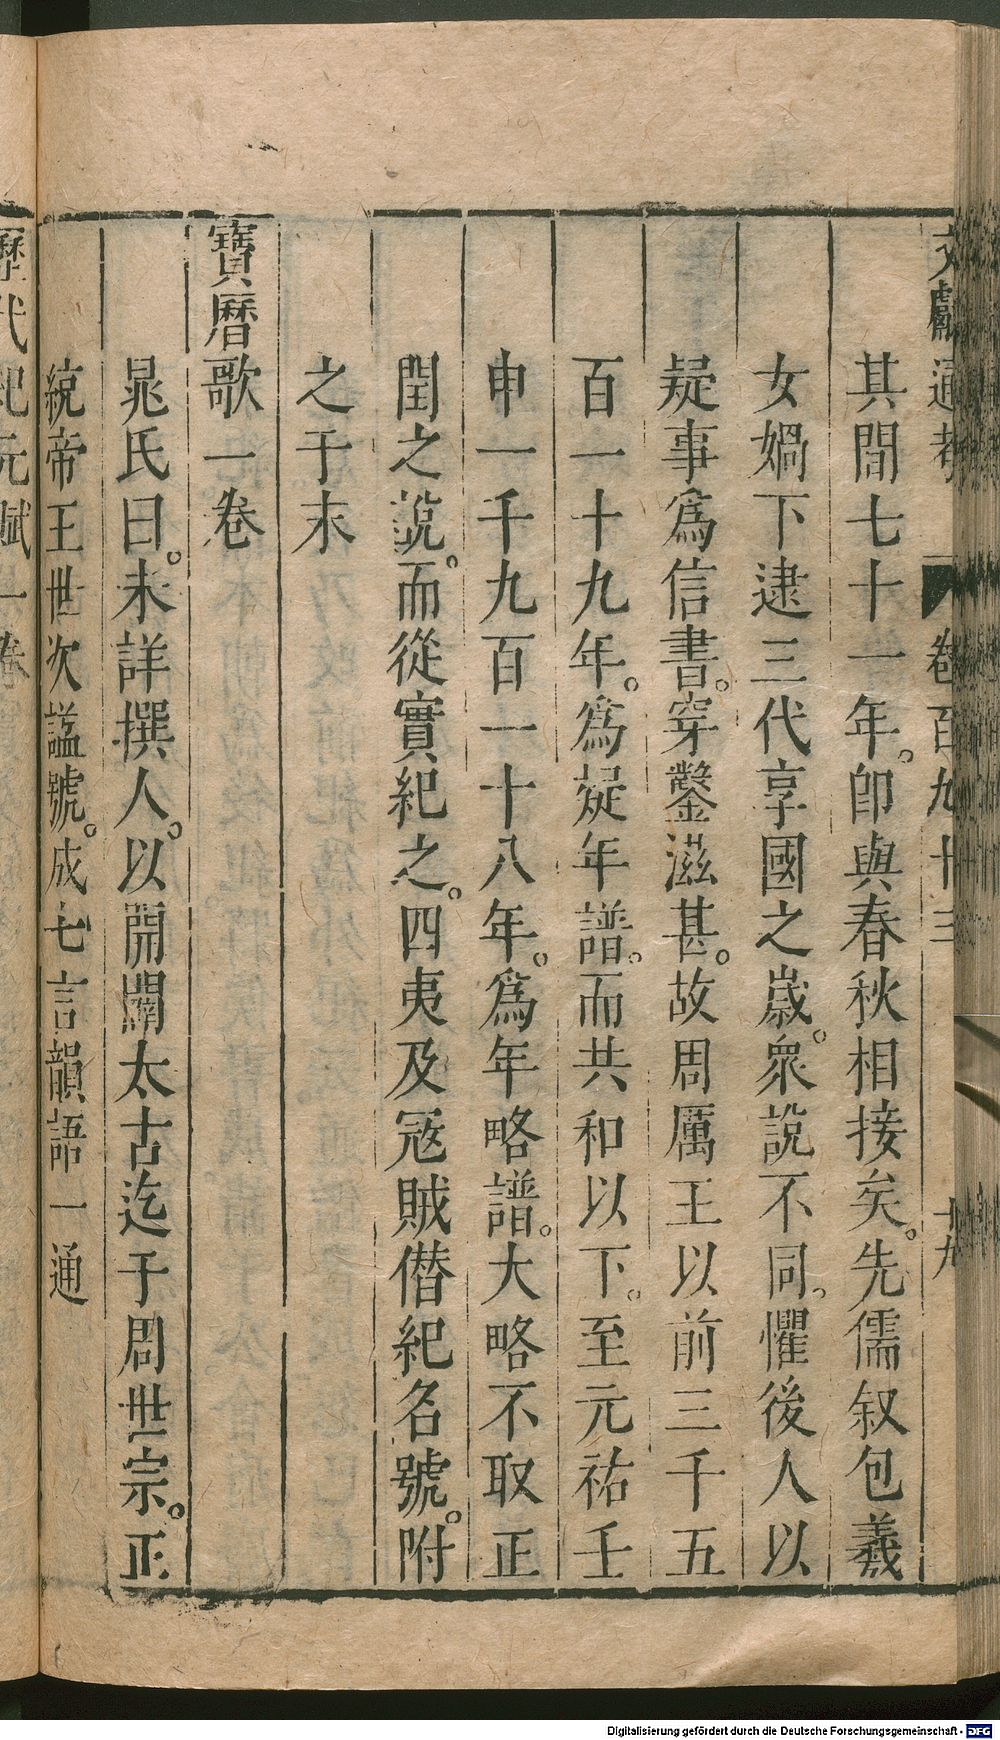 文獻通考 卷百九十三 十九
其間七十一年。卽與春秋相接矣。先儒叙包羲
女媧下逮三代享國之歲。衆說不同。懼後人以
疑事爲信書。穿鑿滋甚。故周厲王以前三千五
百一十九年。爲疑年譜。而共和以下。至元祐壬
申一千九百一十八年。爲年略譜。大略不取正
閏之說。而從實紀之。四夷及冦賊僣紀名號。附
之于末
寶曆歌一卷
晁氏曰。未詳撰人。以開闢太古迄于周世宗。正
統帝王世次謚號。成七言韻語一通
歷代紀元賦一卷
Digitalisierung gefördert durch die Deutsche Forschungsgemeinschaft - DFG